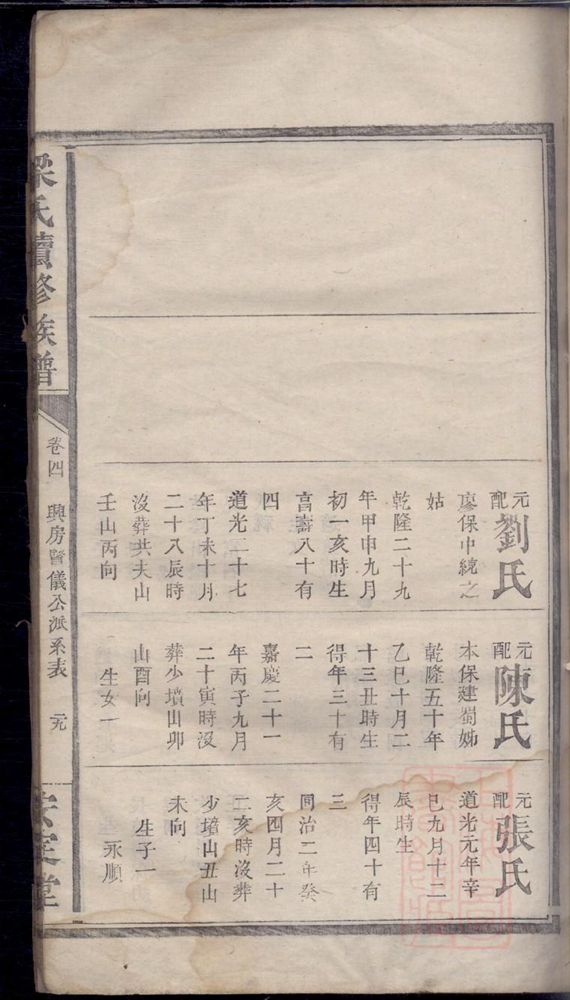 元配劉氏
廖保中統之
姑
乾隆二十九
年甲申九月
初一亥時生
亯壽八十有
四
道光二十七
年丁未十月
二十八辰時
沒葬共夫山
壬山丙向
元配陳氏
本保建蜀姊
乾隆五十年
乙巳十月二
十三丑時生
得年三十有
二
嘉慶二十一
年丙子九月
二十寅時沒
葬少墳山卯
山酉向
生女一
元配張氏
道光元年辛
巳九月十二
辰時生
得年四十有
三
同治二年癸
亥四月二十
二亥時沒葬
少墳山丑山
未向
生子一
永順
梁氏續修族譜
卷四
興房暨儀公派系表
元
安定堂